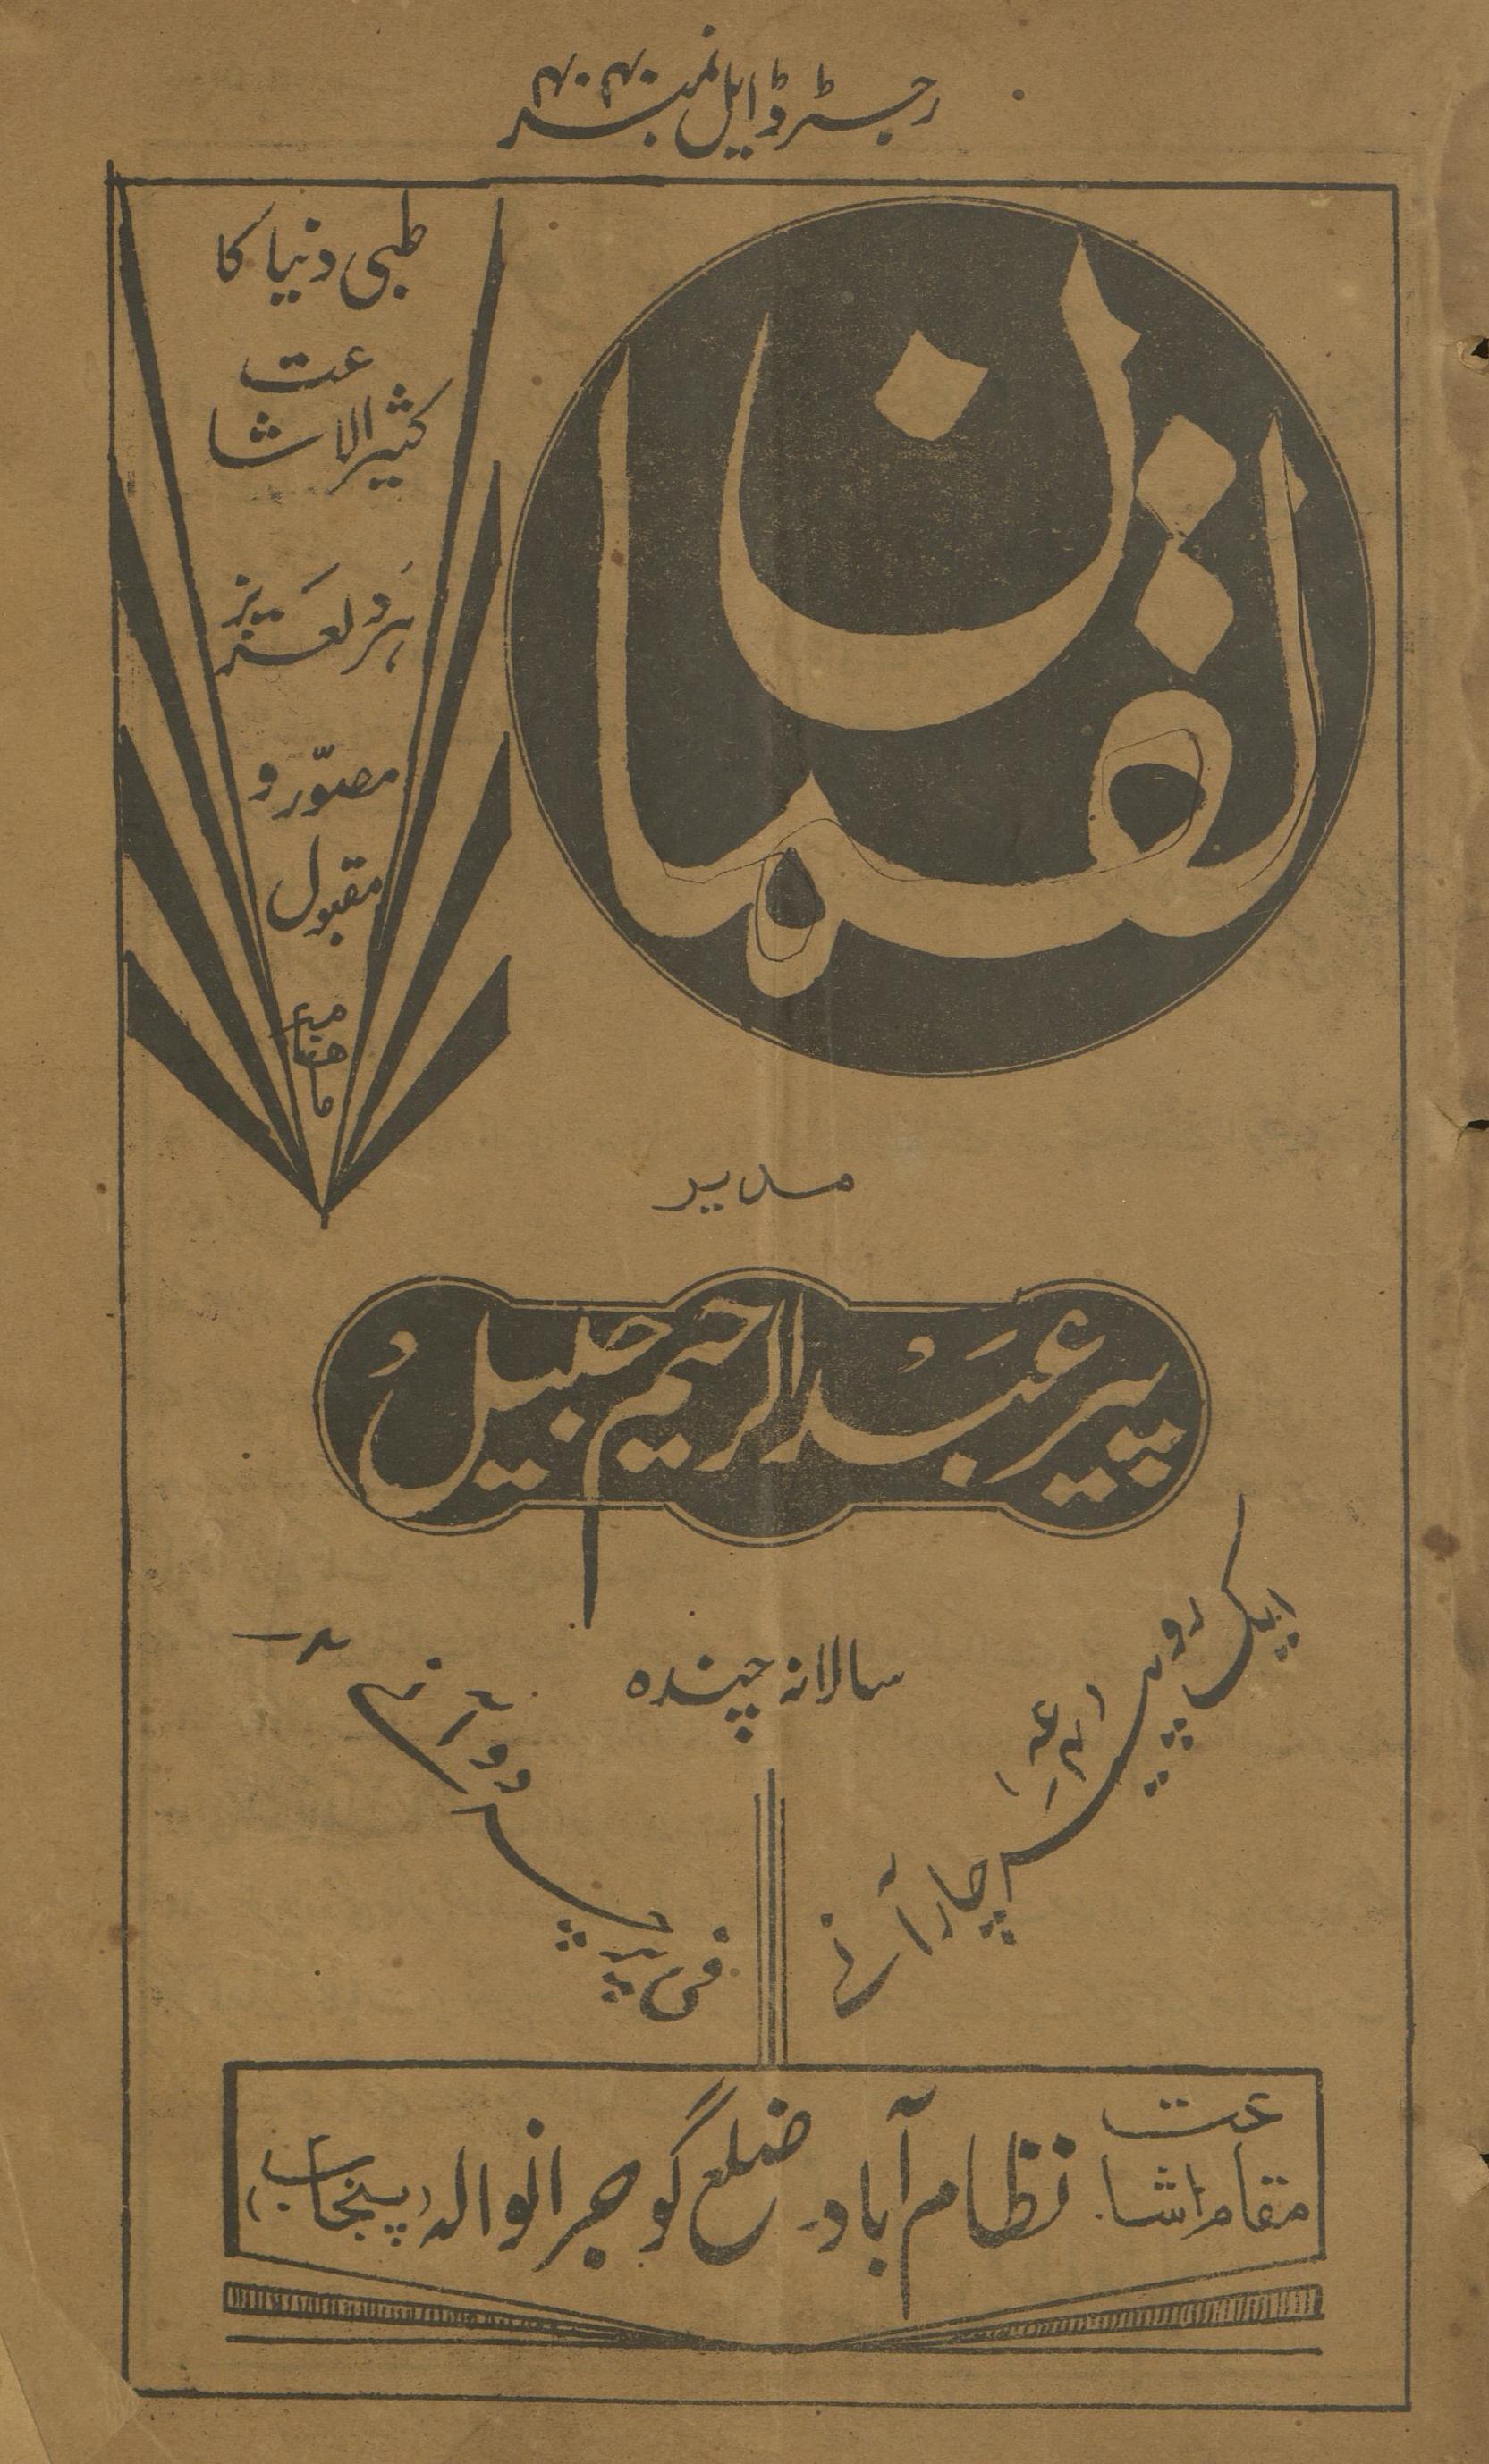 رجسٹرڈ ایل نمبر ۴۰۴۰
لقمان
طبی دنیا کا
کثیر الاشاعت
ہردلعزیز
مصوّر و
مقبول
ماہنامہ
مدیر
پیر عبدالرحیم جلیل
سالانہ چندہ
ایک روپیہ چار آنے
فی پرچہ دو آنہ
مقام اشاعت نظام آباد۔ ضلع گوجرانوالہ (پنجاب)